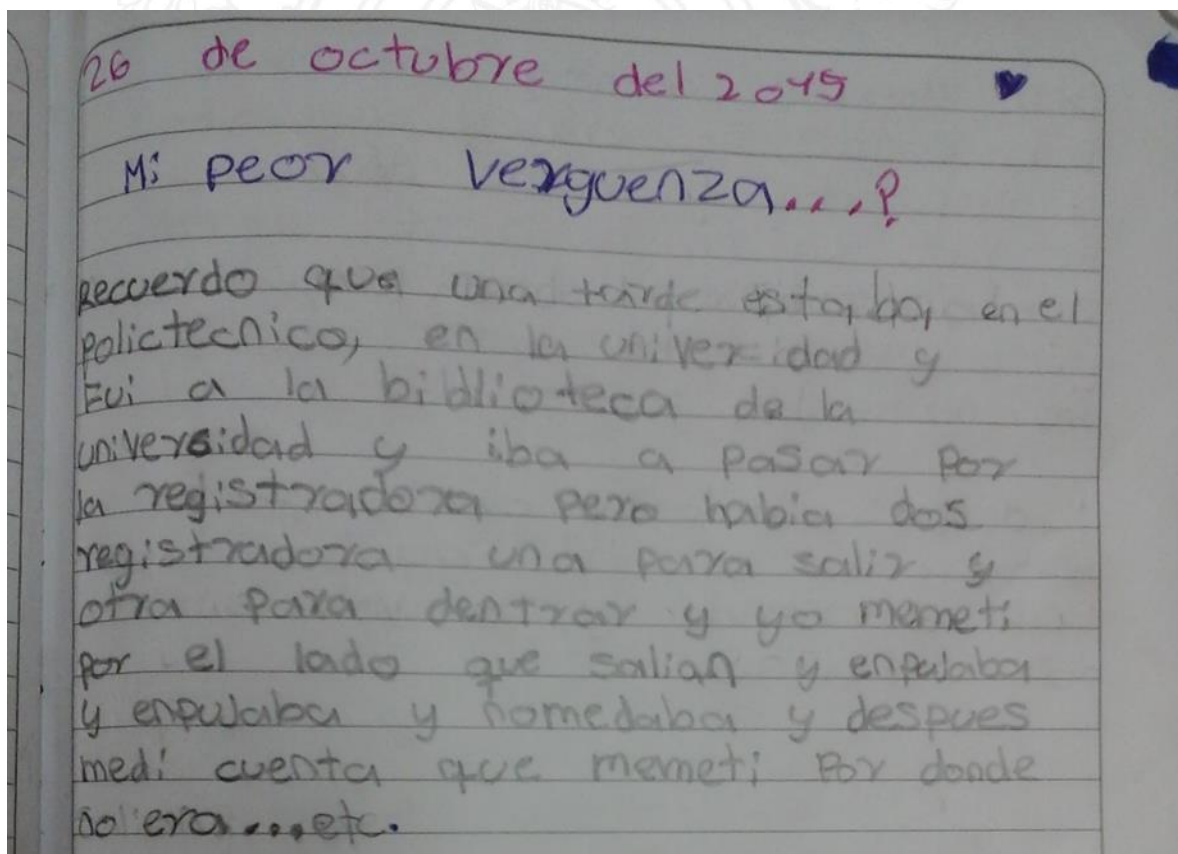 26 de octubre del 2015
Mi peor verguenza...?
Recuerdo que una tarde estaba en el
polictecnico, en la univer idad y
Fui a la biblioteca de la
universidad y iba a pasar por
la registradora pero habia dos
registradora una para salir y
otra para dentrar y yo memeti
por el lado que salian y enpujaba
y enpujaba y nomedaba y despues
medi cuenta que memeti por donde
no era...etc.